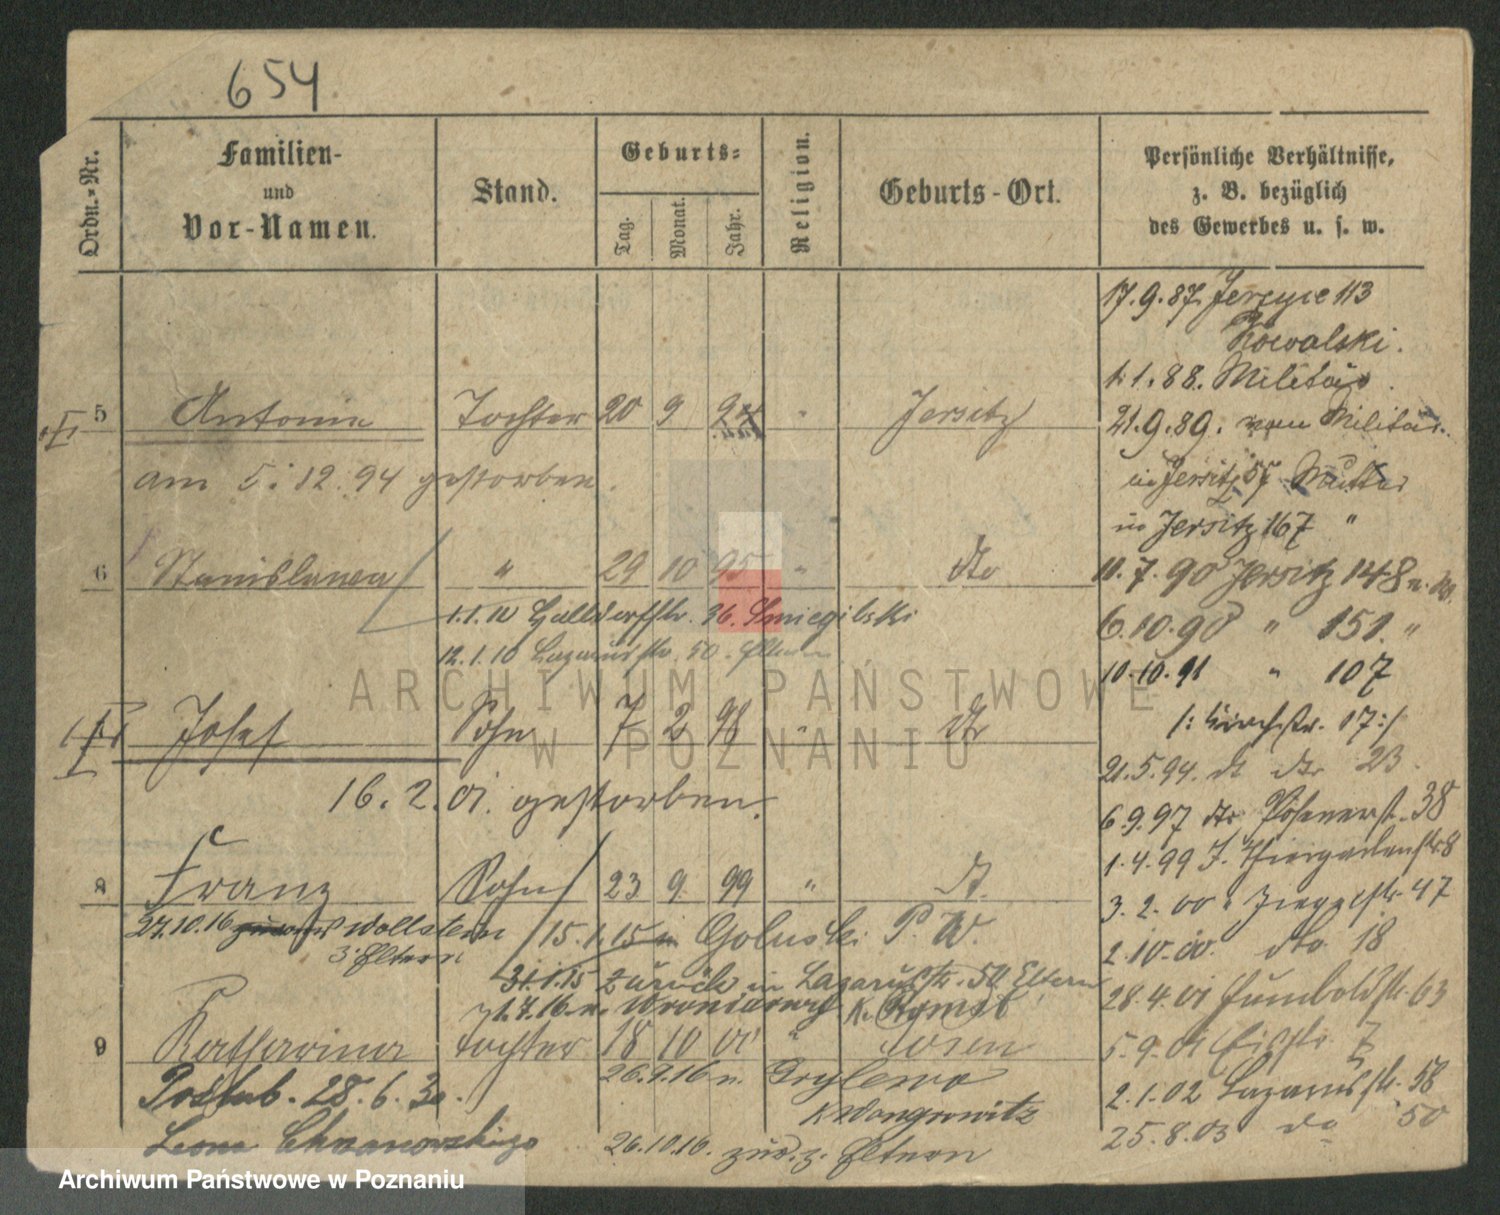 654
Ordn.-Nr.
Familien-
und
Vor-Namen.
Stand.
Geburts-
Tag.
Monat.
Jahr.
Religion.
Geburts-Ort.
Persönliche Verhältnisse,
z. B. bezüglich
des Gewerbes u. s. w.
17.9.87. Jerzyce 113
Kowalski.
1.1.88. Militär.
5 Antonie Tochter 20 9 Jersitz
21.9.89. vom Militär
am 5.12.94 gestorben.
in Jersitz 57 Mutter
in Jersitz 167 "
6 Stanislawa " 29 10 95 " dto
11.7.90 Jersitz 148
1.1.10 36.
6.10.90 " 151. "
12.1.10 Lazarusstr. 50. Eltern
10.10.91 " 107
Josef Sohn 7 2 98 " dto
/: Kirchstr. 17:/
21.5.94. 23.
16.2.01. gestorben.
6.9.97 dto Posenerst. 38
1.4.99 J. Thiergartenstr 8
8 Franz Sohn 23 9 99 " dt.
3.2.00 " 47
27.10.16 Wollstein
z. Eltern
15.1.15 Goluski P. W.
2.10.00. dto 18
31.1.15 zurück in Lazarusstr. 50 Eltern
28.4.01 Humboldstr. 63
1.7.16 n. Wroniawy K. Bomst
9 Katharina Tochter 18 10 00 " Posen
5.9.01 7
Postab. 28.6.30.
26.9.16 n. Grylewo
2.1.02 Lazarusstr. 58
K Wongrowitz
25.8.03 do 50
Leona Chrzanowskiego
26.10.16. zur. z. Eltern
ARCHIWUM PAŃSTWOWE
W POZNANIU
Archiwum Państwowe w Poznaniu